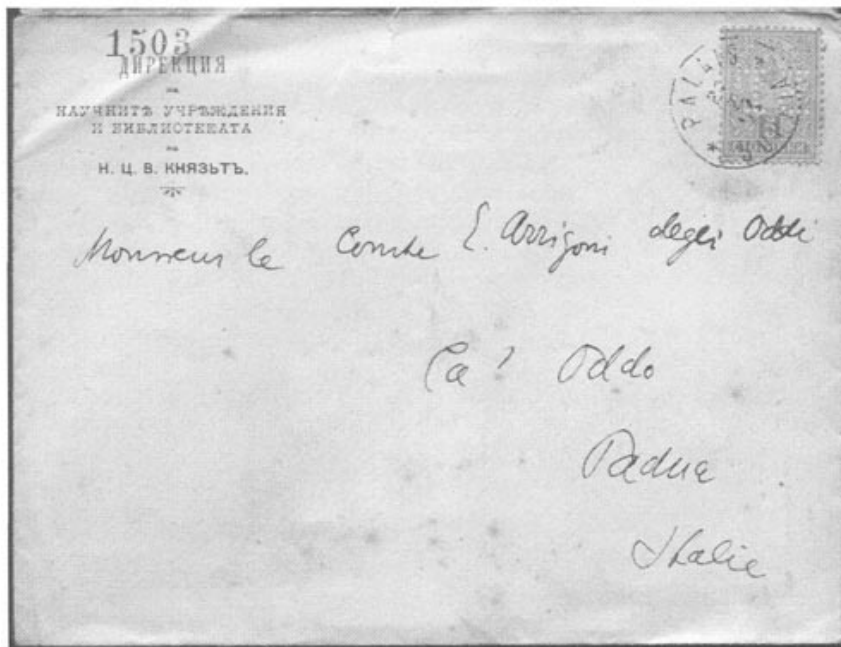 1503
ДИРЕКЦИЯ
на
НАУЧНИТѢ УЧРѢЖДЕНИЯ
И БИБЛИОТЕКАТА
на
Н. Ц. В. КНЯЗЬТЪ.
Monsieur le Comte E. Arrigoni degli Oddi
Ca' Oddo
Padua
Italie